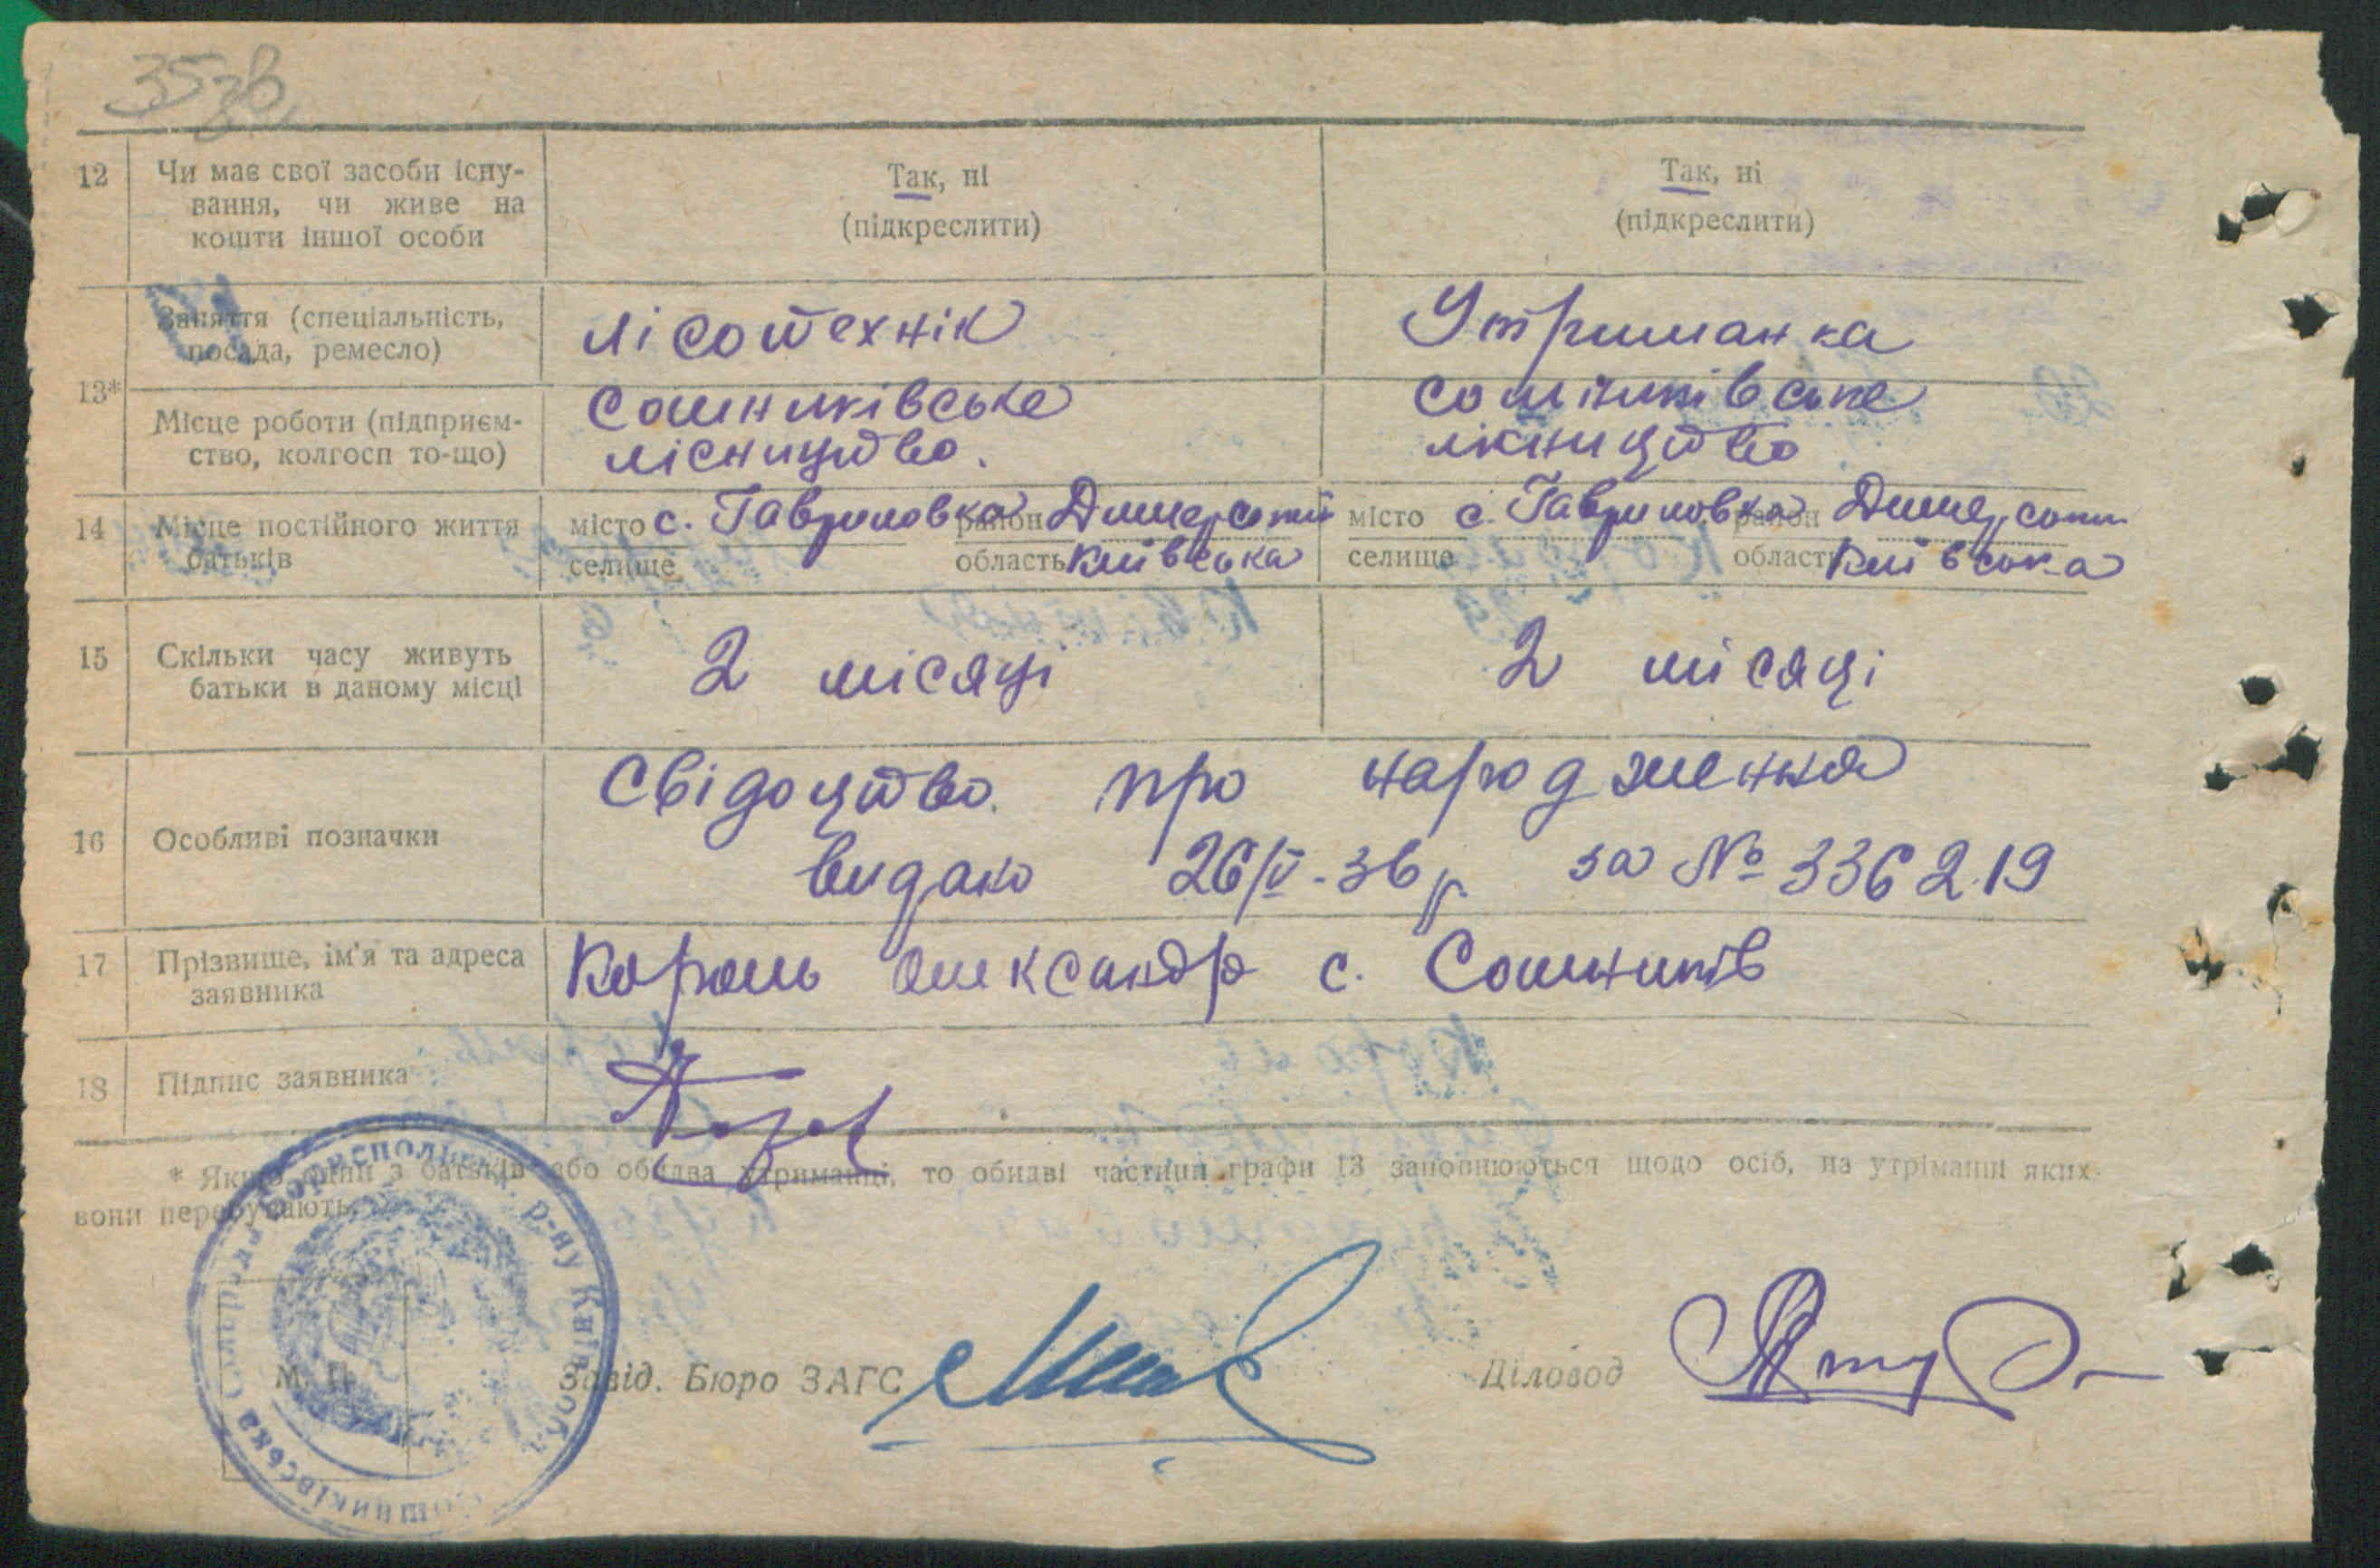 12 Чи має свої засоби існу-
вання, чи живе на
кошти іншої особи
Так, ні
(підкреслити)
Так, ні
(підкреслити)
13*
Заняття (спеціальність,
посада, ремесло)
лісотехнік
Утриманка
Місце роботи (підприєм-
ство, колгосп то-що)
Сошниківське
лісництво.
Сошниківське
лісництво
14 Місце постійного життя
батьків
місто с. Гавриловка район Димерський
селище область Київська
місто с. Гавриловка район Димерськи
селище область Київська
15 Скільки часу живуть
батьки в даному місці
2 місяці
2 місяці
16 Особливі позначки
Свідоцтво про народження
видано 26/V-36 р. за № 336219
17 Прізвище, ім'я та адреса
заявника
Король Олександр с. Сошників
18 Підпис заявника
* Якщо один з батьків або обидва утриманці, то обидві частини графи 13 заповнюються щодо осіб, на утріманні яких
вони перебувають.
Сошниківська сільрада Бориспольськ. р-ну Київ. обл.
М. П.
Завід. Бюро ЗАГС
Діловод